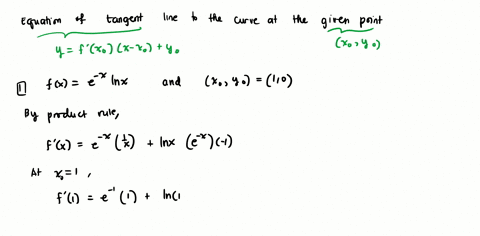 Equation of tangent line to the curve at the given point
y = f'(x₀)(x-x₀) + y₀
(x₀, y₀)
1 f(x) = e^{-x} lnx and (x₀, y₀) = (1,0)
By product rule,
f'(x) = e^{-x} (1/x) + lnx (e^{-x})(-1)
At x₀=1,
f'(1) = e^{-1} (1) + ln(1